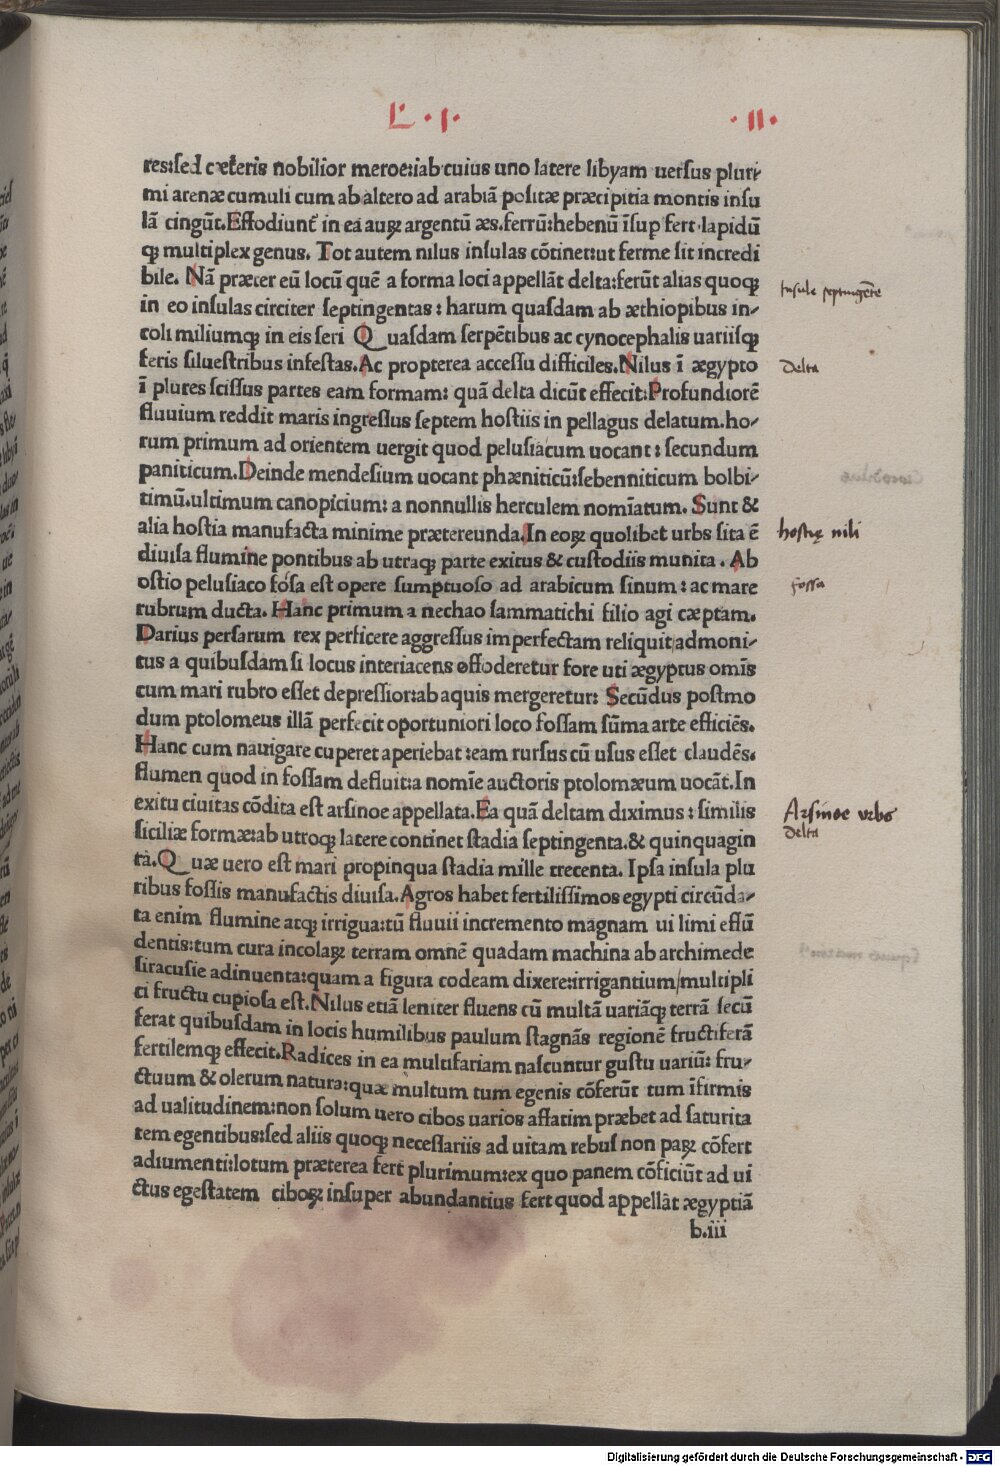 L · I ·
· II ·
res:sed cæteris nobilior meroe:iab cuius uno latere libyam uersus pluri
mi arenæ cumuli cum ab altero ad arabiā positæ præcipitia montis insu
lā cingūt. Effodiunt̄ in ea auꝝ argentū æs. ferrū:hebenū īsup fert · lapidū
qꝫ multiplex genus. Tot autem nilus insulas cōtinet:ut ferme sit incredi
bile. Nā præter eū locū quē a forma loci appellāt delta:ferūt alias quoqꝫ
in eo insulas circiter septingentas: harum quasdam ab æthiopibus in-
coli miliumqꝫ in eis seri Quasdam serpētibus ac cynocephalis uariisqꝫ
feris siluestribus infestas. Ac propterea accessu difficiles. Nilus ī ægypto
ī plures scissus partes eam formam: quā delta dicūt effecit: Profundiorē
fluuium reddit maris ingressus septem hostiis in pellagus delatum. ho-
rum primum ad orientem uergit quod pelusiacum uocant: secundum
paniticum. Deinde mendesium uocant phæniticū:sebenniticum bolbi-
timū. ultimum canopicium: a nonnullis herculem nomīatum. Sunt &
alia hostia manufacta minime prætereunda. In eoꝝ quolibet urbs sita ē
diuisa flumine pontibus ab utraqꝫ parte exitus & custodiis munita. Ab
ostio pelusiaco fosa est opere sumptuoso ad arabicum sinum: ac mare
rubrum ducta. Hanc primum a nechao sammatichi filio agi cæptam.
Darius persarum rex perficere aggressus imperfectam reliquit admoni-
tus a quibusdam si locus interiacens offoderetur fore uti ægyptus omīs
cum mari rubro esset depressior:ab aquis mergeretur: Secūdus postmo
dum ptolomeus illā perfecit oportuniori loco fossam sūma arte efficiēs.
Hanc cum nauigare cuperet aperiebat :eam rursus cū usus esset claudēs.
flumen quod in fossam defluit:a nomīe auctoris ptolomæum uocāt. In
exitu ciuitas cōdita est arsinoe appellata. Ea quā deltam diximus: similis
siciliæ formæ:ab utroqꝫ latere continet stadia septingenta. & quinquagin
ta. Quæ uero est mari propinqua stadia mille trecenta. Ipsa insula plu
ribus fossis manufactis diuisa. Agros habet fertilissimos egypti circūda-
ta enim flumine atqꝫ irrigua:tū fluuii incremento magnam ui limi effū
dentis:tum cura incolaꝝ terram omnē quadam machina ab archimede
siracusie adinuenta:quam a figura codeam dixere:irrigantium multipli
ci fructu cupiosa est. Nilus etiā leniter fluens cū multā uariāqꝫ terrā secū
ferat quibusdam in locis humilibus paulum stagnās regionē fructiferā
fertilemqꝫ effecit. Radices in ea multifariam nascuntur gustu uariū: fru-
ctuum & olerum natura:quæ multum tum egenis cōferūt tum īfirmis
ad ualitudinem:non solum uero cibos uarios affatim præbet ad saturita
tem egentibus:sed aliis quoqꝫ necessariis ad uitam rebus non paꝝ cōfert
adiumenti:lotum præterea fert plurimum:ex quo panem cōficiūt ad ui
ctus egestatem ciboꝝ insuper abundantius fert quod appellāt ægyptiā
b.iii
Insule septingente
Delta
hostię nili
fossa
Arsinoe urbs
delta
Digitalisierung gefördert durch die Deutsche Forschungsgemeinschaft - DFG